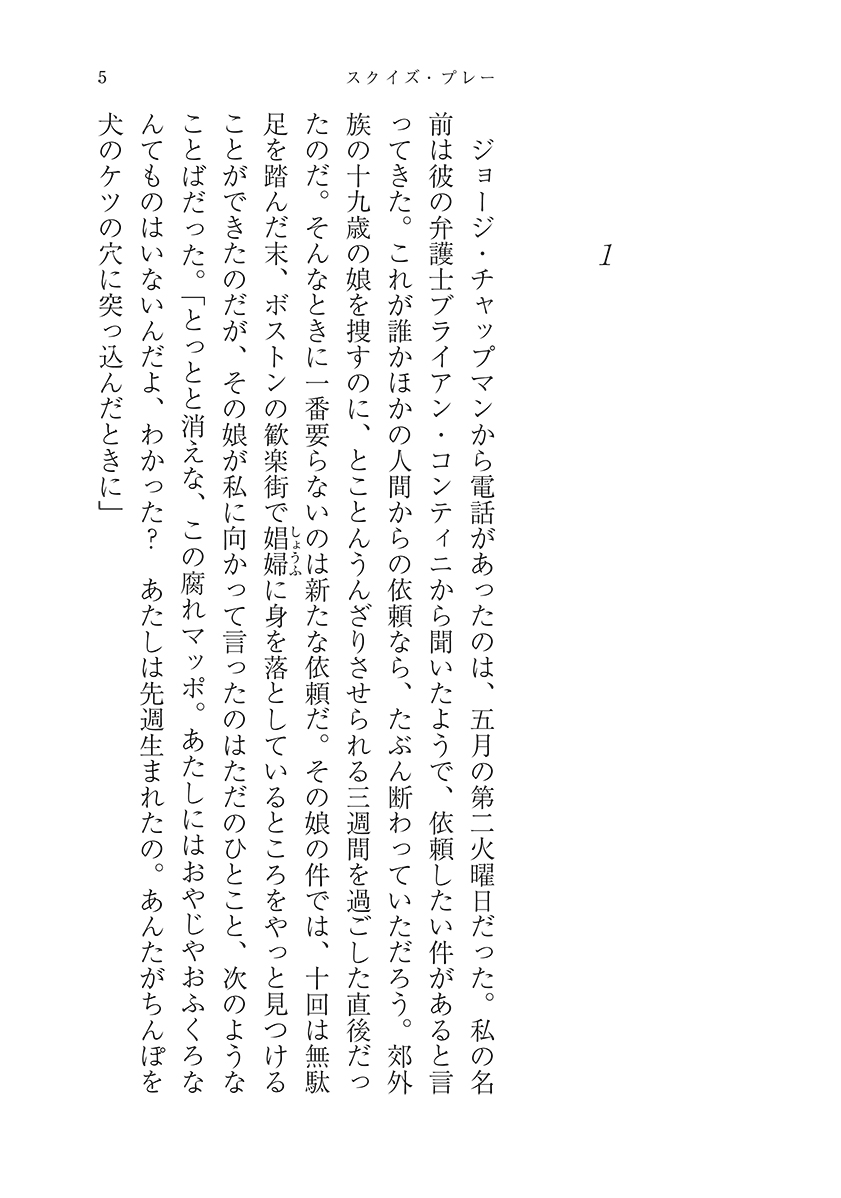 5
スクイズ・プレー
1
ジョージ・チャップマンから電話があったのは、五月の第二火曜日だった。私の名
前は彼の弁護士ブライアン・コンティニから聞いたようで、依頼したい件があると言
ってきた。これが誰かほかの人間からの依頼なら、たぶん断わっていただろう。郊外
族の十九歳の娘を捜すのに、とことんうんざりさせられる三週間を過ごした直後だっ
たのだ。そんなときに一番要らないのは新たな依頼だ。その娘の件では、十回は無駄
足を踏んだ末、ボストンの歓楽街で娼婦に身を落としているところをやっと見つける
しょうふ
ことができたのだが、その娘が私に向かって言ったのはただのひとこと、次のような
ことばだった。「とっとと消えな、この腐れマッポ。あたしにはおやじやおふくろな
んてものはいないんだよ、わかった？　あたしは先週生まれたの。あんたがちんぽを
犬のケツの穴に突っ込んだときに」